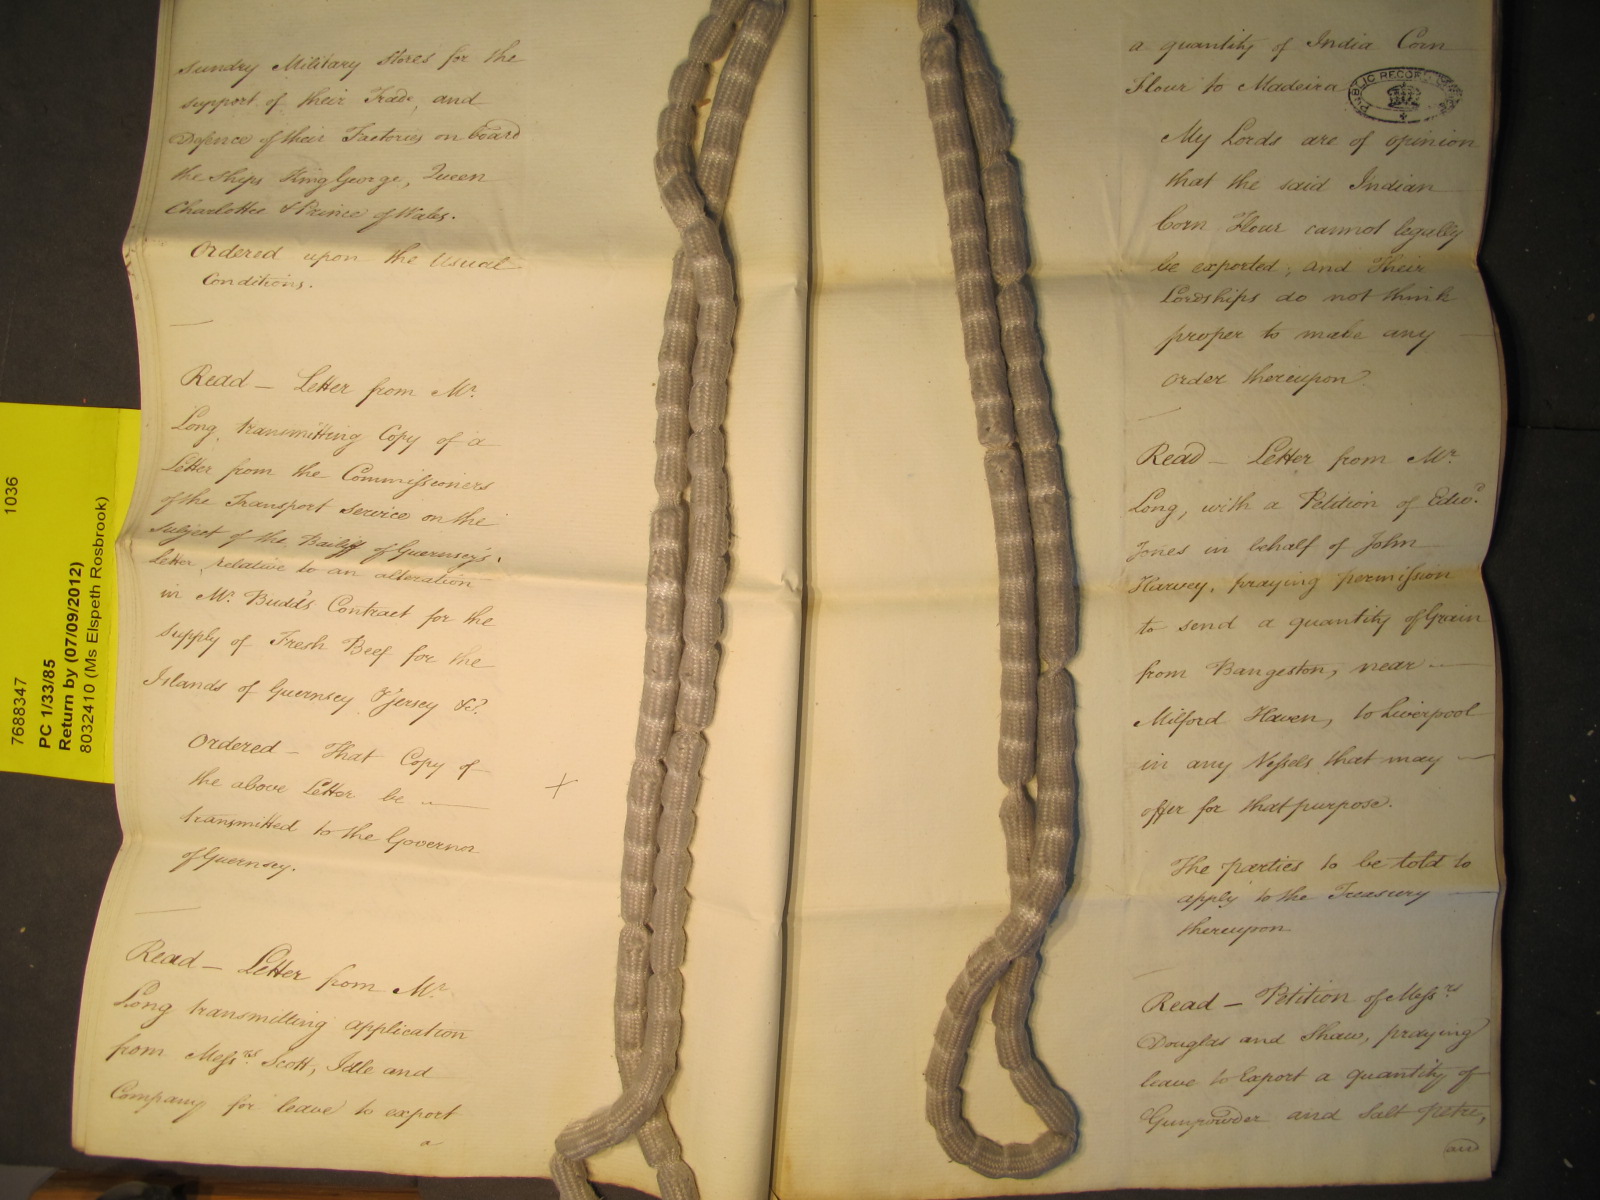 Sundry Military Stores for the
support of their Trade, and
Defence of their Factories on board
the Ships King George, Queen
Charlotte & Prince of Wales.
Ordered upon the Usual
Conditions.
Read - Letter from Mr.
Long, transmitting Copy of a
Letter from the Commissioners
of the Transport Service on the
subject of the Bailiff of Guernsey's
Letter, relative to an alteration
in Mr. Budd's Contract for the
supply of Fresh Beef for the
Islands of Guernsey & Jersey &c.
Ordered - That Copy of
the above Letter be
transmitted to the Governor
of Guernsey.
Read - Letter from Mr.
Long transmitting application
from Messrs. Scott, Idle and
Company for leave to export
a
a quantity of India Corn
Flour to Madeira
PUBLIC RECORD OFFICE
My Lords are of opinion
that the said Indian
Corn Flour cannot legally
be exported; and Their
Lordships do not think
proper to make any
order thereupon.
Read - Letter from Mr.
Long, with a Petition of Edwd.
Jones in behalf of John
Harvey, praying permission
to send a quantity of Grain
from Bangeston, near
Milford Haven, to Liverpool
in any Vessels that may
offer for that purpose.
The parties to be told to
apply to the Treasury
thereupon
Read - Petition of Messrs
Douglas and Shaw, praying
leave to Export a quantity of
Gunpowder and Salt Petre,
and
7688347 1036
PC 1/33/85
Return by (07/09/2012)
8032410 (Ms Elspeth Rosbrook)